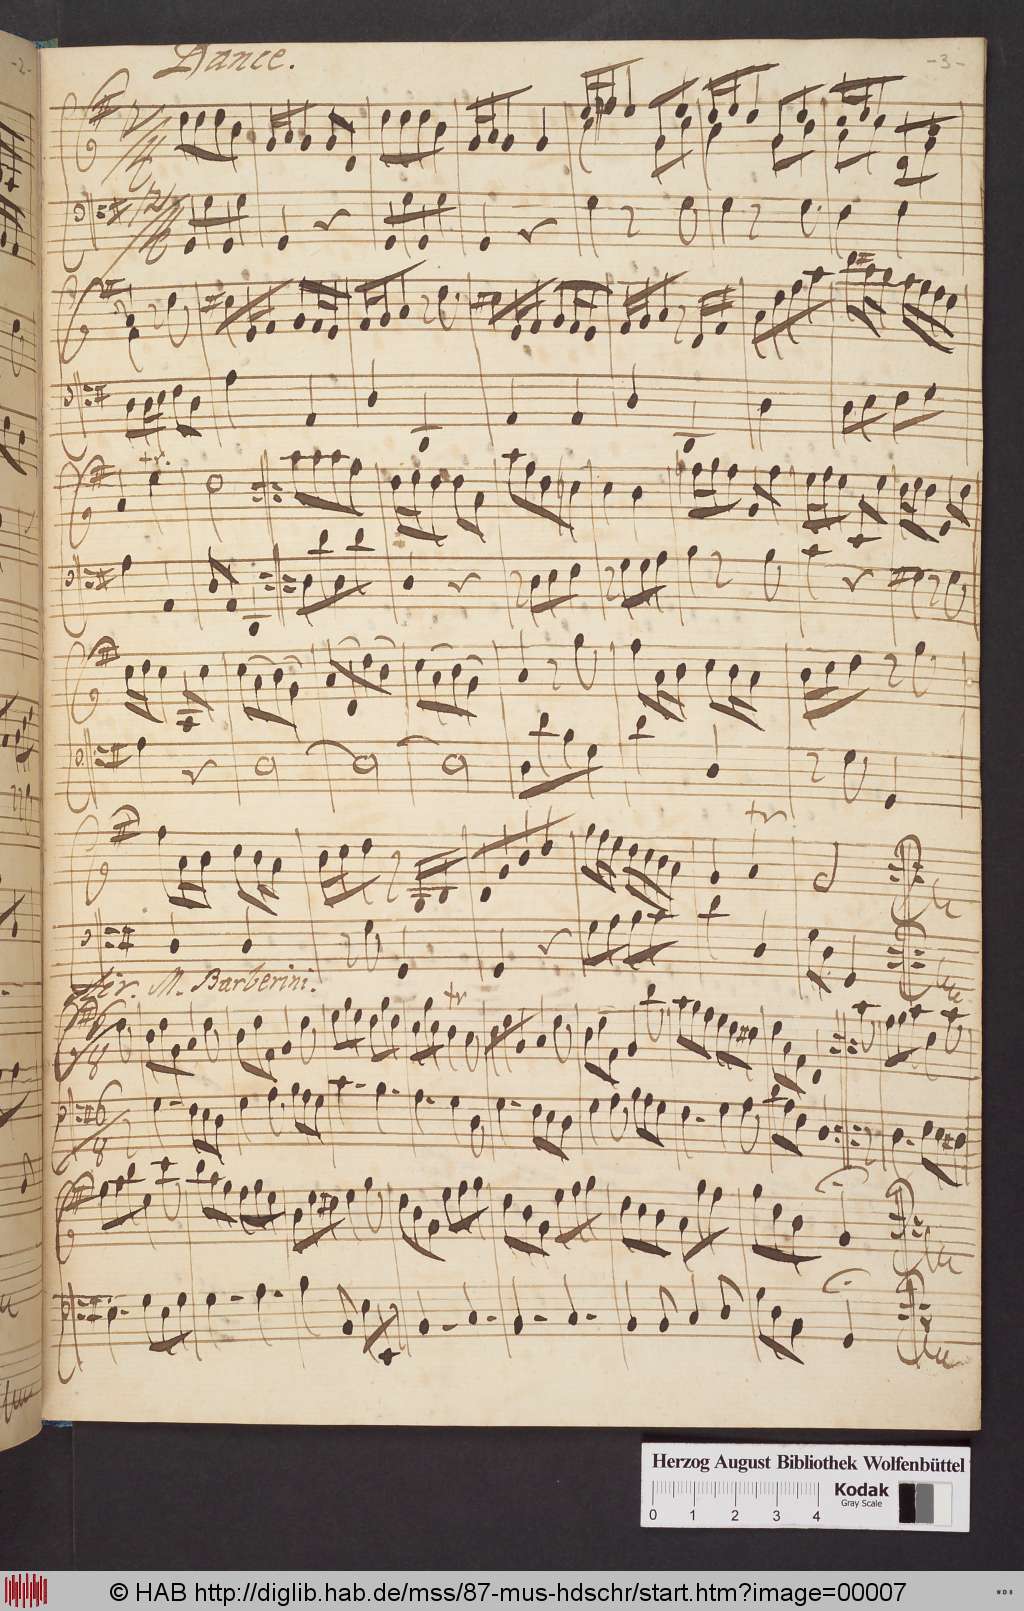 -2-
Dance.
-3-
2/4
2/4
tr.
tr
Air. M. Barberini.
6/8
tr
6/8
Herzog August Bibliothek Wolfenbüttel
Kodak
Gray Scale
0 1 2 3 4
© HAB http://diglib.hab.de/mss/87-mus-hdschr/start.htm?image=00007
WDB